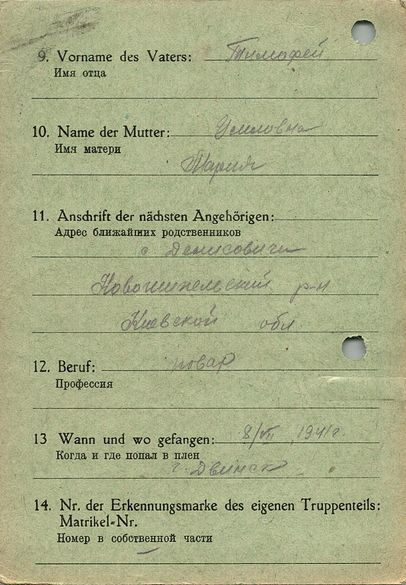 9. Vorname des Vaters: Тимофей
Имя отца
10. Name der Mutter:
Имя матери
Мария
11. Anschrift der nächsten Angehörigen:
Адрес ближайших родственников
с. Денисовичи
р-н
Киевской обл
12. Beruf: повар
Профессия
13 Wann und wo gefangen: 8/VII 1941г.
Когда и где попал в плен
г. Двинск
14. Nr. der Erkennungsmarke des eigenen Truppenteils:
Matrikel-Nr.
Номер в собственной части